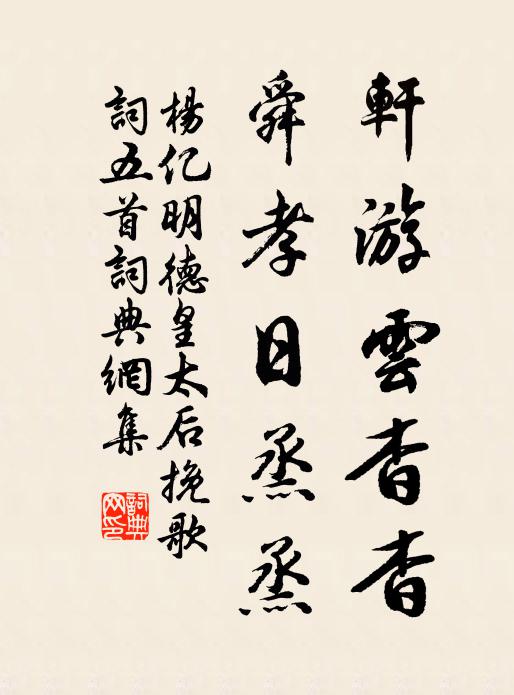 軒游雲杳杳
舜孝日烝烝
楊亿明德皇太后挽歌
詞五首詞典網集
詞典网印